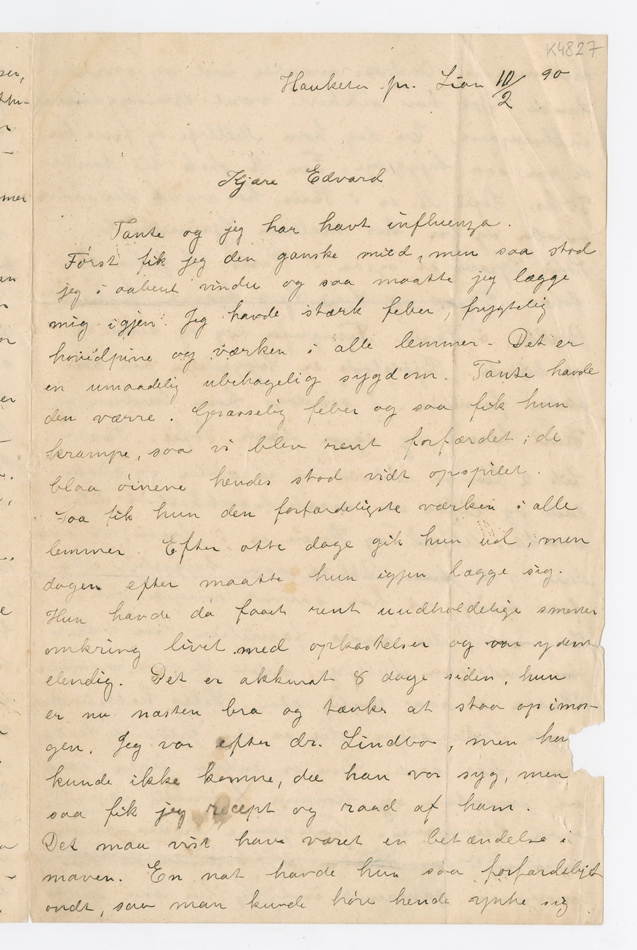 K4827
Hauketo pr. Lian 10/2 90
Kjære Edvard
Tante og jeg har havt influenza.
Først fik jeg den ganske mild, men saa stod
jeg i aabent vindu og saa maatte jeg lægge
mig igjen. Jeg havde stærk feber, frygtelig
hovedpine og værken i alle lemmer. Det er
en umaadelig ubehagelig sygdom. Tante havde
den værre. Græsselig feber og saa fik hun
krampe, saa vi blev rent forfærdet; de
blaa øinene hendes stod vidt opspilet.
Saa fik hun den forfærdeligste værken i alle
lemmer. Efter otte dage gik hun ud, men
dagen efter maatte hun igjen lægge sig.
Hun havde da faaet rent uudholdelige smerter
omkring livet med opkastelser og var yderst
elendig. Det er akkurat 8 dage siden, hun
er nu næsten bra og tænker at staa op imor-
gen. Jeg var efter dr. Lindbo, men han
kunde ikke komme, da han var syg, men
saa fik jeg recept og raad af ham.
Det maa vist have været en betændelse i
maven. En nat havde hun saa forfærdeligt
ondt, saa man kunde høre hende ynke sig